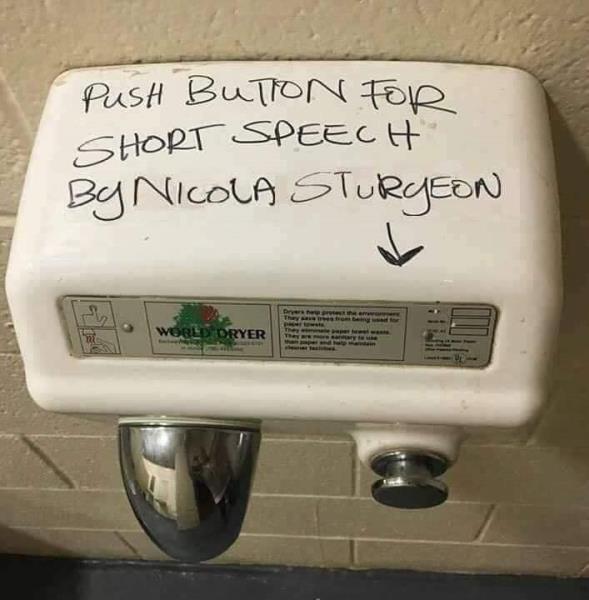 PUSH BUTTON FOR
SHORT SPEECH
By NICOLA STURgEON
WORLD DRYER
Dryers help protect the environment
They save trees from being used for
paper towels.
They eliminate paper towel waste.
They are more sanitary to use
than paper and help maintain
cleaner facilities.